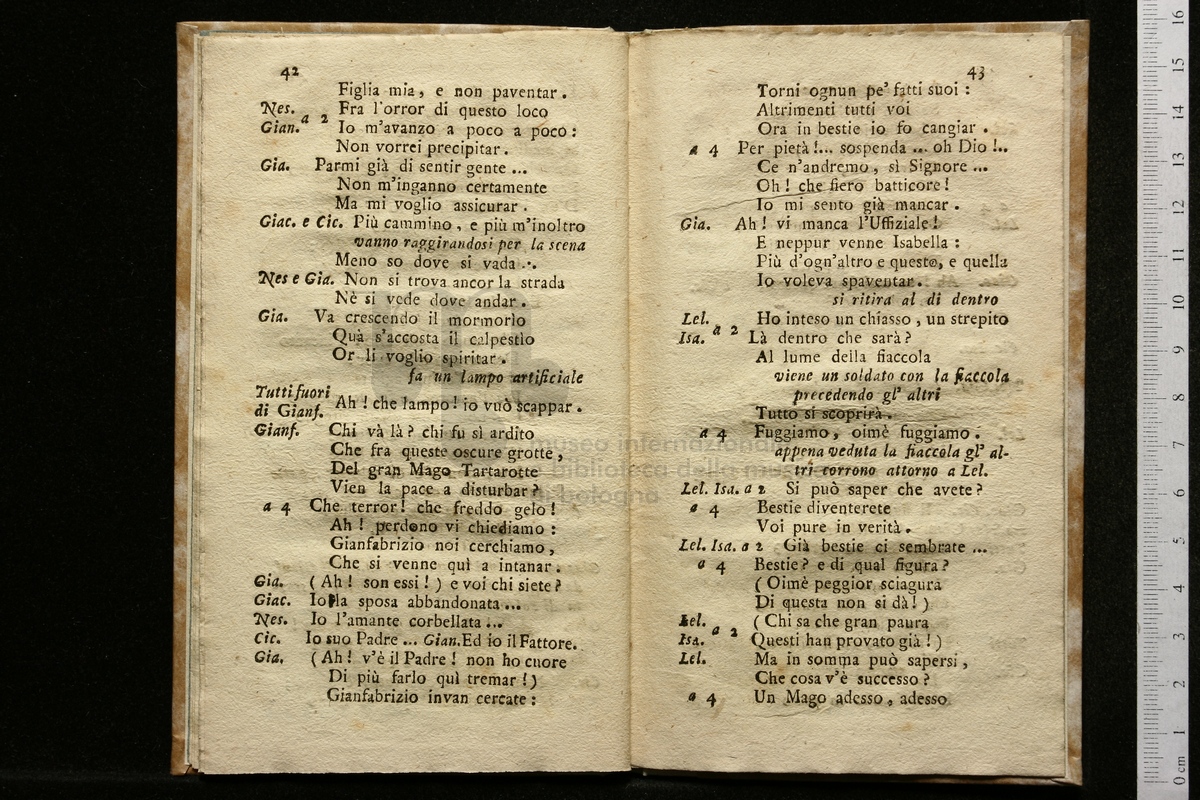 42
Figlia mia, e non paventar.
Nes. a 2 Fra l'orror di questo loco
Gian. Io m'avanzo a poco a poco:
Non vorrei precipitar.
Gia. Parmi già di sentir gente ...
Non m'inganno certamente
Ma mi voglio assicurar.
Giac. e Cic. Più cammino, e più m'inoltro
vanno raggirandosi per la scena
Meno so dove si vada ..
Nes e Gia. Non si trova ancor la strada
Nè si vede dove andar.
Gia. Va crescendo il mormorìo
Quà s'accosta il calpestìo
Or li voglio spiritar.
fa un lampo artificiale
Tutti fuori di Gianf. Ah! che lampo! io vuò scappar.
Gianf. Chi và là? chi fu sì ardito
Che fra queste oscure grotte,
Del gran Mago Tartarotte
Vien la pace a disturbar?
a 4 Che terror! che freddo gelo!
Ah! perdono vi chiediamo:
Gianfabrizio noi cerchiamo,
Che si venne quì a intanar.
Gia. (Ah! son essi!) e voi chi siete?
Giac. Io la sposa abbandonata ...
Nes. Io l'amante corbellata ...
Cic. Io suo Padre ... Gian. Ed io il Fattore.
Gia. (Ah! v'è il Padre! non ho cuore
Di più farlo quì tremar!)
Gianfabrizio invan cercate:
43
Torni ognun pe' fatti suoi:
Altrimenti tutti voi
Ora in bestie io fo cangiar.
a 4 Per pietà!... sospenda ... oh Dio!..
Ce n'andremo, sì Signore ...
Oh! che fiero batticore!
Io mi sento già mancar.
Gia. Ah! vi manca l'Uffiziale!
E neppur venne Isabella:
Più d'ogn'altro e questo, e quella
Io voleva spaventar.
si ritira al di dentro
Lel. a 2 Ho inteso un chiasso, un strepito
Isa. Là dentro che sarà?
Al lume della fiaccola
viene un soldato con la fiaccola
precedendo gl' altri
Tutto si scoprirà.
a 4 Fuggiamo, oimè fuggiamo.
appena veduta la fiaccola gl' al-
tri corrono attorno a Lel.
Lel. Isa. a 2 Si può saper che avete?
a 4 Bestie diventerete
Voi pure in verità.
Lel. Isa. a 2 Già bestie ci sembrate ...
a 4 Bestie? e di qual figura?
(Oimè peggior sciagura
Di questa non si dà!)
Lel. a 2 (Chi sa che gran paura
Isa. Questi han provato già!)
Lel. Ma in somma può sapersi,
Che cosa v'è successo?
a 4 Un Mago adesso, adesso
museo internazionale
e biblioteca della musica
di bologna